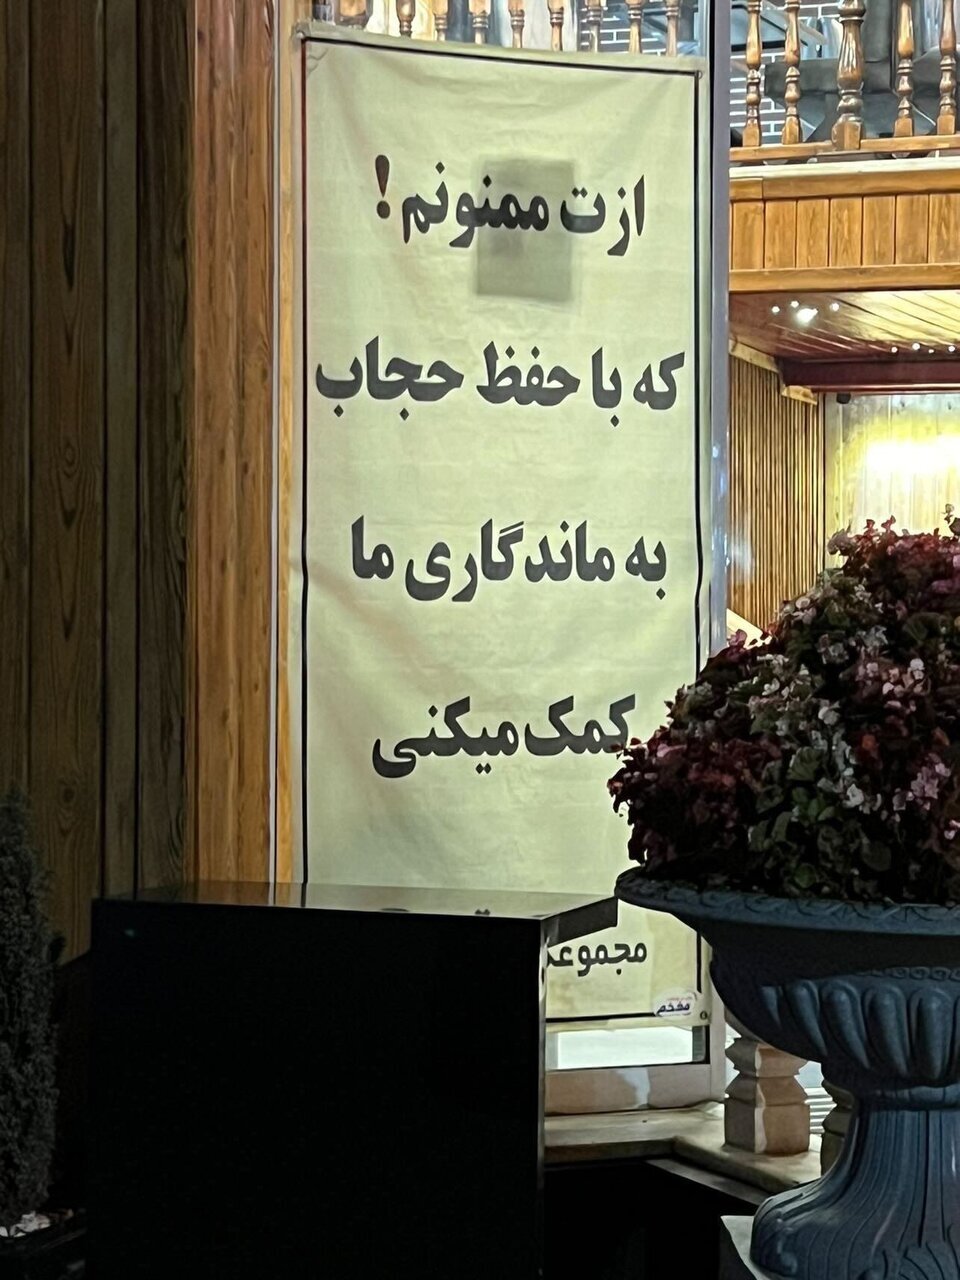 ازت ممنونم!
که با حفظ حجاب
به ماندگاری ما
کمک میکنی
مفخم